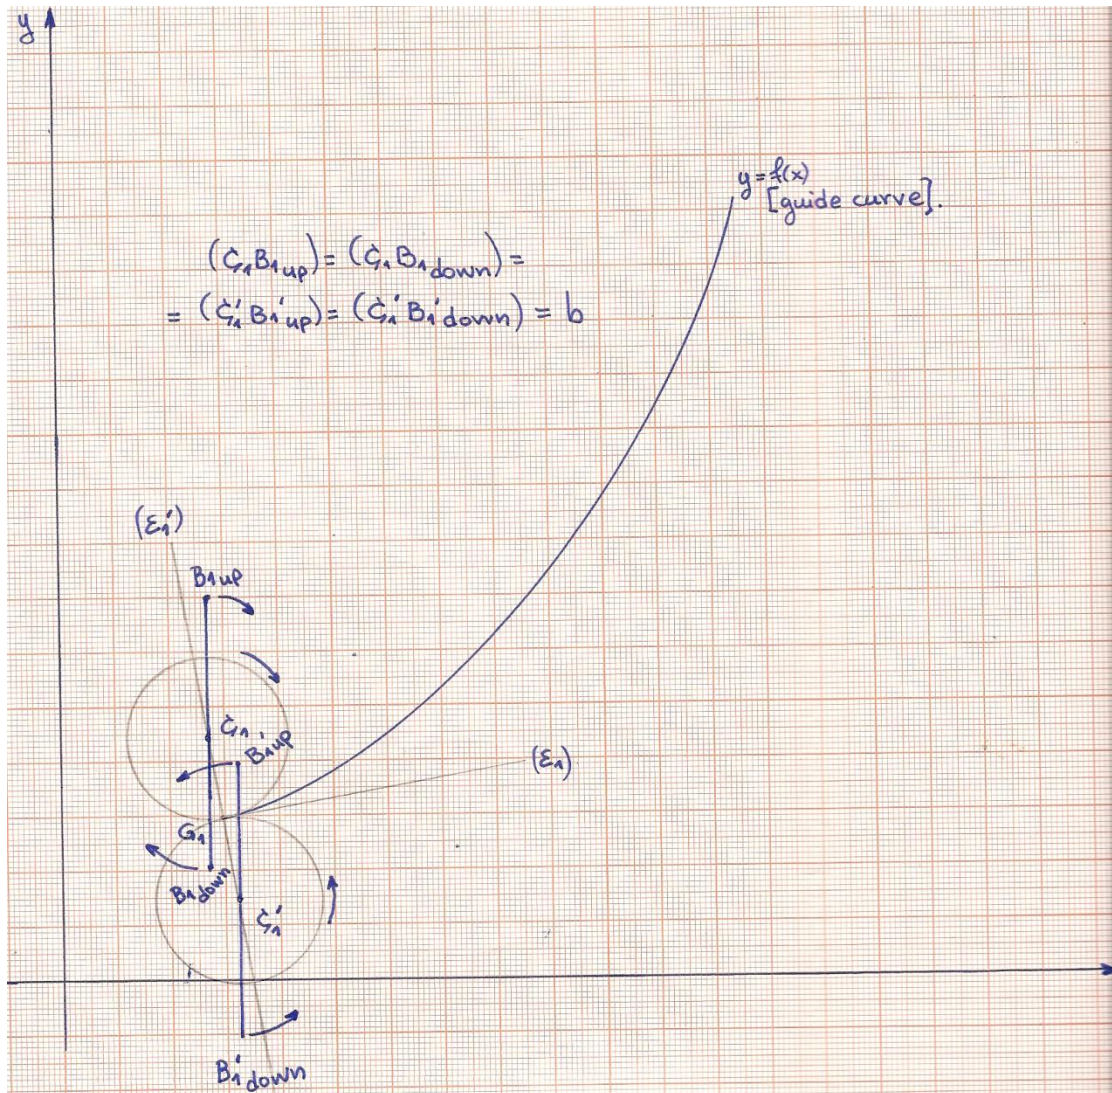 y
y=f(x)
[guide curve].
(C₁B₁up)=(C₁B₁down)=
=(C₁'B₁'up)=(C₁'B₁'down)=b
(ε₁')
B₁up
C₁
B₁'up
(ε₁)
G₁
B₁down
C₁'
B₁'down